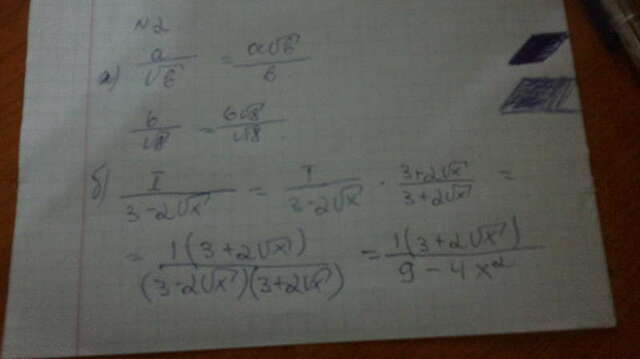 №2
а) a/√6 = a√6/6
6/√8 = 6√8/√8
б) 1/(3-2√x) = 1/(3-2√x) · (3+2√x)/(3+2√x) =
= 1(3+2√x)/((3-2√x)(3+2√x)) = 1(3+2√x)/(9-4x²)